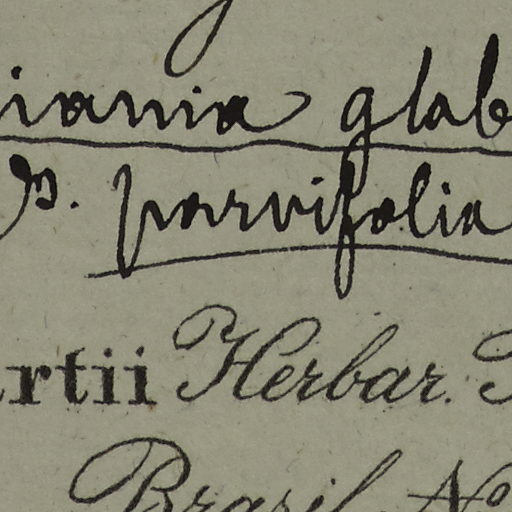 iania glab
β. parvifolia
artii Herbar.
Brasil. No